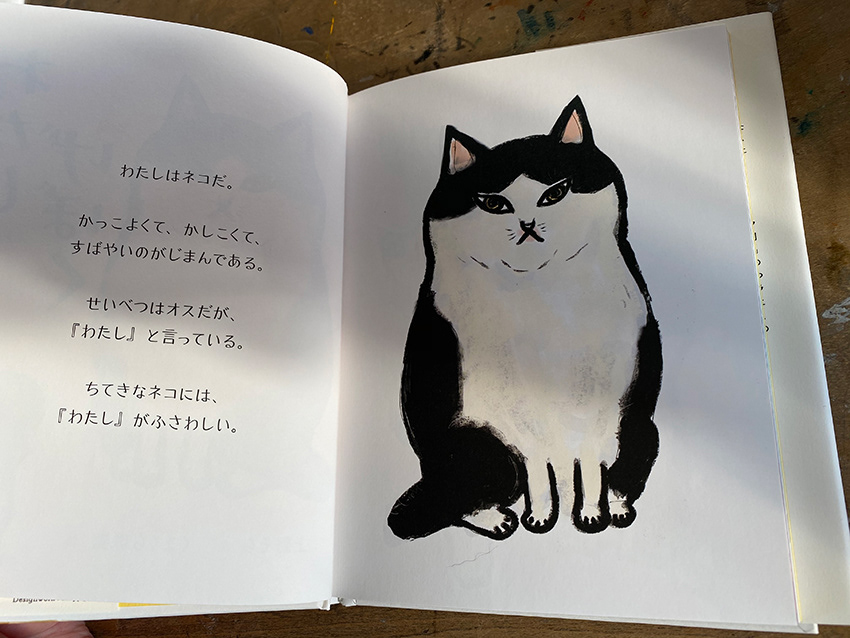 わたしはネコだ。
かっこよくて、かしこくて、
すばやいのがじまんである。
せいべつはオスだが、
『わたし』と言っている。
ちてきなネコには、
『わたし』がふさわしい。